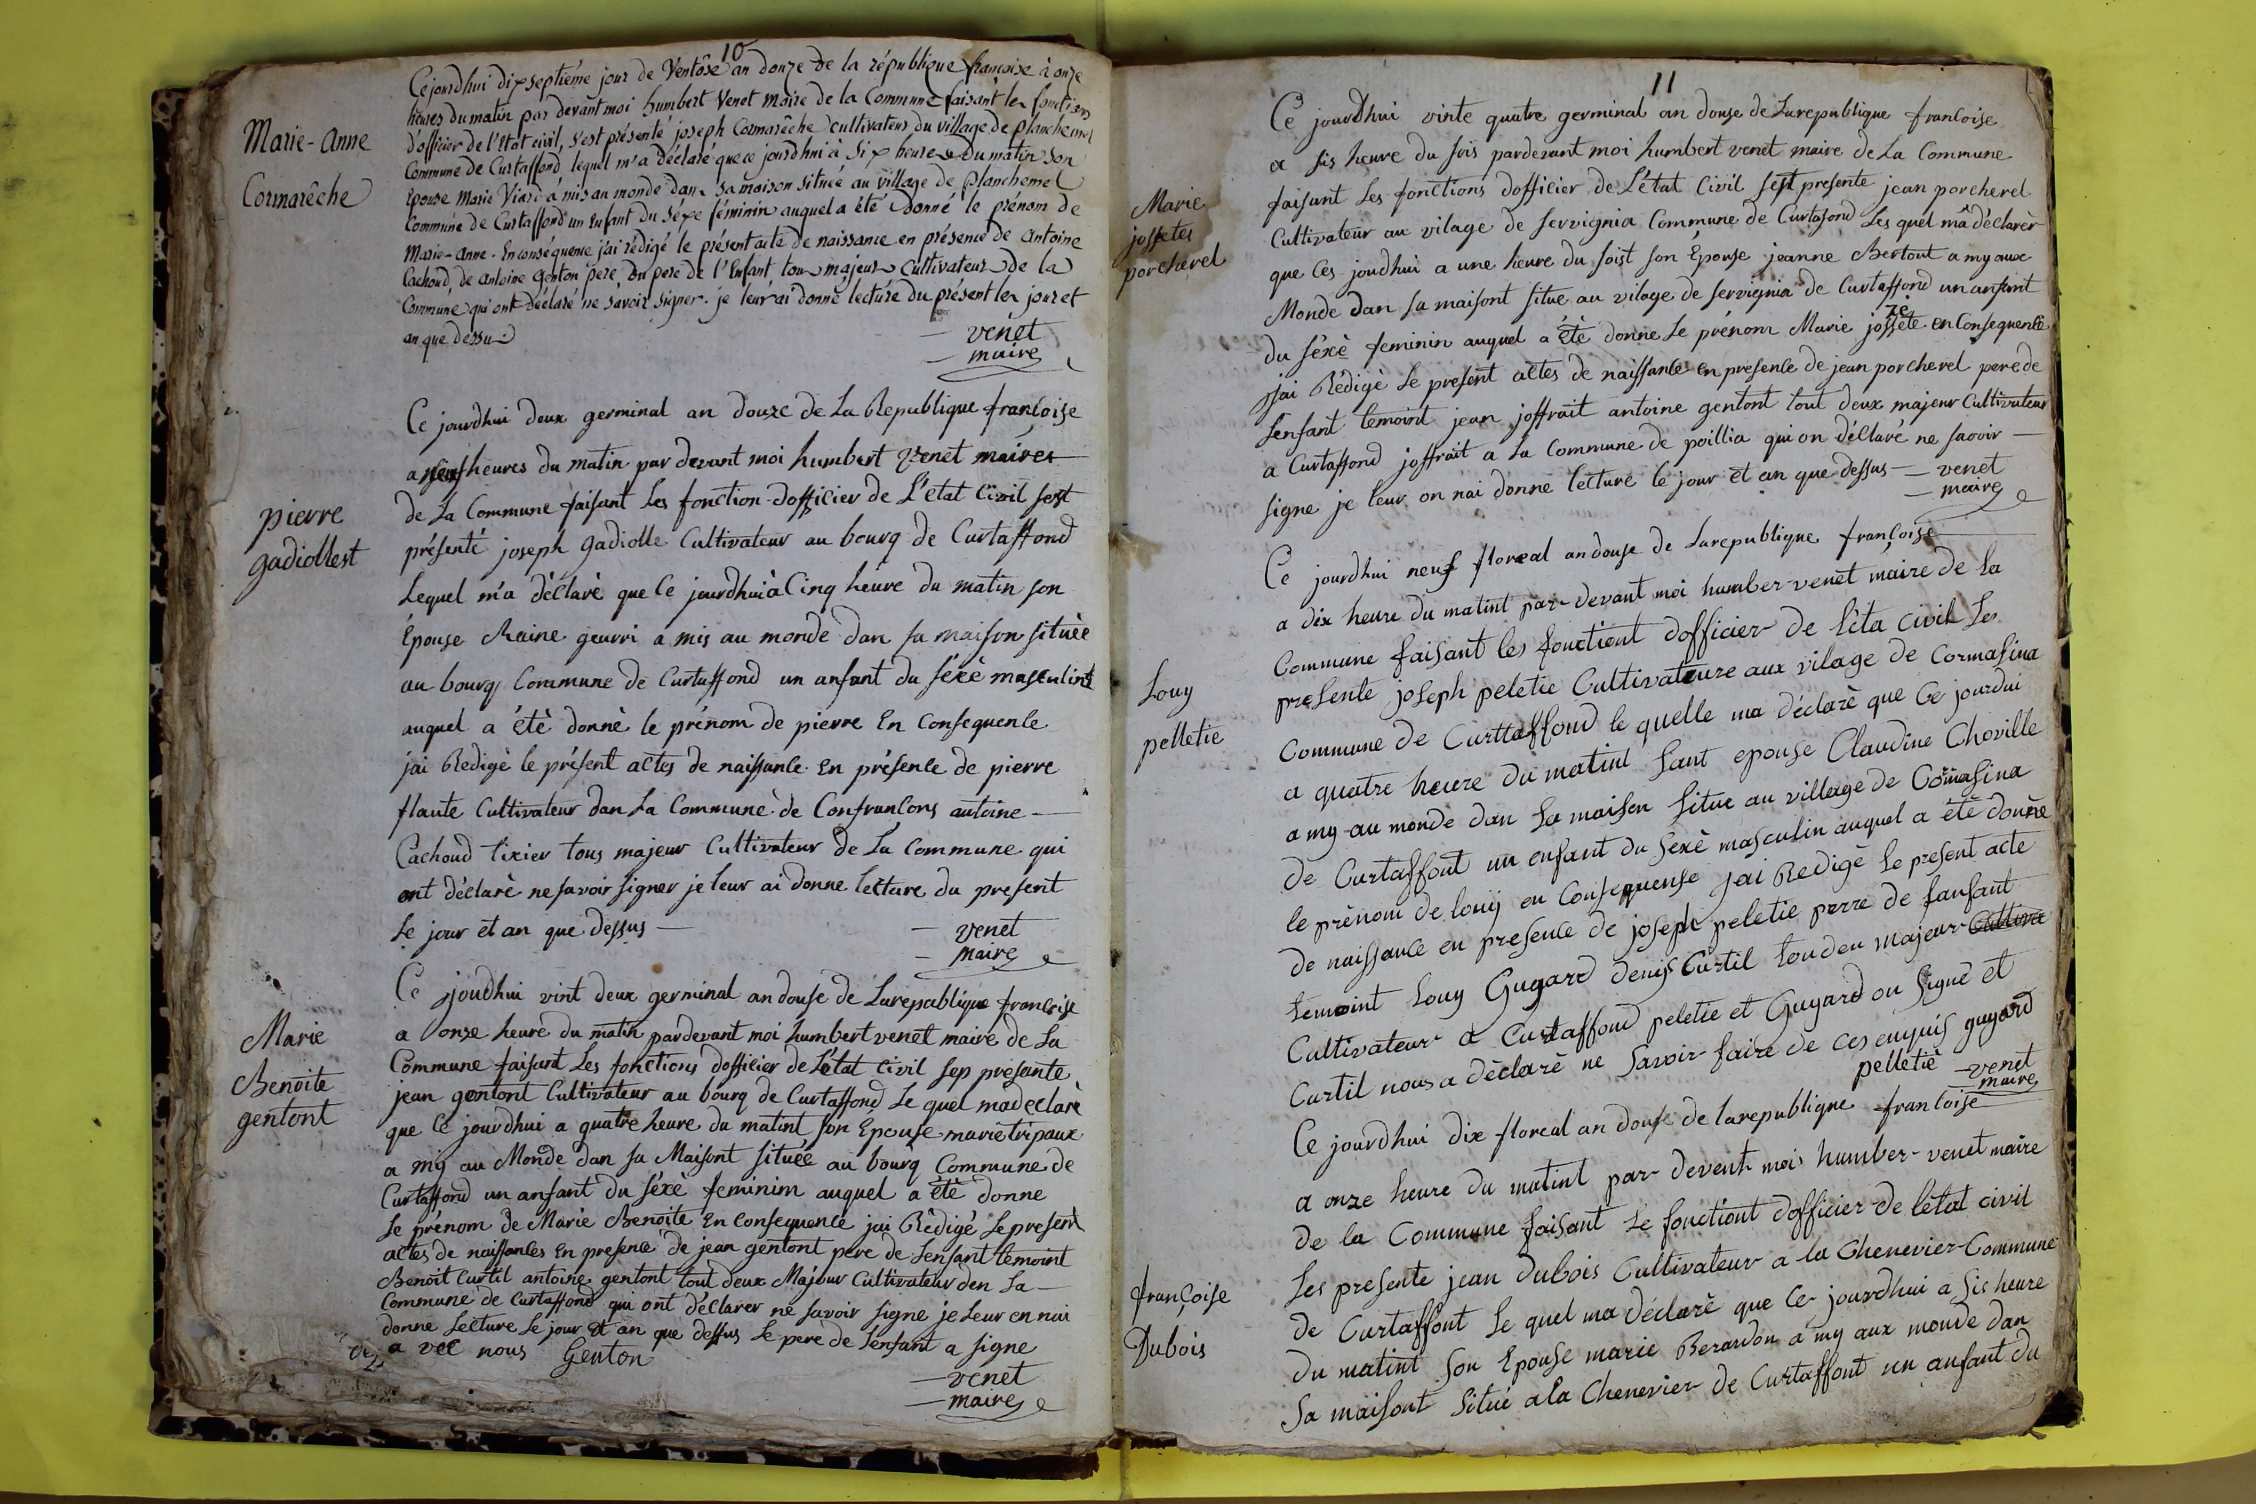 10
Cejourdhui dixseptième jour de Ventôse an douze de la république françoise à onze
heures du matin par devant moi humbert Venet Maire de la Commune faisant les fonctions
d'officier de l'Etat civil, s'est présenté joseph Cormarêche cultivateur du village de planchemel
Marie-Anne
Cormarêche
Commune de Curtaffond lequel m'a déclaré que ce jourdhui à Six heures du matin son
Epouse Marie Viard à mis au monde dans sa maison située au village de planchemel
Commune de Curtaffond un Enfant du séxe féminin auquel a été donné le prénom de
Marie-Anne. En conséquence j'ai rédigé le présent acte de naissance en présence de Antoine
Cachoud, de Antoine Genton père, du pere de l'Enfant tous majeurs Cultivateurs de la
Commune qui ont déclaré ne savoir signer. je leur ai donné lecture du présent les jour et
an que dessus
venet
maire
Ce jourdhui deux germinal an douze de La Republique francoise
a neuf heures du matin par devant moi humbert Venet maires
de La Commune faisant Les fonction dofficier de L'état Civil sest
pierre
gadiollest
présenté joseph gadiolle Cultivateur au bourg de Curtaffond
Lequel m'a déclarè que Ce jourdhui à Cinq heure du matin son
Épouse Reine geurri a mis au monde dan sa maison situèe
au bourg Commune de Curtaffond un anfant du séxè masculint
auquel a étè donnè le prénom de pierre En Consequence
jai Redigè le présent actes de naissance En présence de pierre
flaute Cultivateur dan La Commune de Confrancons antoine
Cachoud tixier tous majeur Cultivateur de La Commune qui
ont déclarè ne savoir signer je leur ai donne lecture du present
Le jour et an que dessus
venet
maire
Ce joudhui vint deux germinal an douse de Larepublique francoise
a onze heure du matin pardevant moi humbert venet maire de La
Marie
Benoite
gentont
Commune faisant Les fonctions dofficier de L'état Civil sep presante
jean gentont Cultivateur au bourg de Curtaffond Le quel madeclarè
que Ce jourdhui a quatre heure du matint son Épouse marie tripaux
a my au Monde dan sa Maisont située au bourg Commune de
Curtaffond un anfant du séxè feminim auquel a étè donne
Le prénom de Marie Benoite En Consequence jai Rédigé Le present
actes de naissances En presence de jean gentont pere de Lenfant temoint
Benoit Curtil antoine gentont tout deux Majeur Cultivateur den La
Commune de Curtaffond qui ont déclarer ne savoir signe je Leur en nai
donne Lecture Le jour et an que dessus Le pere de Lenfant a signe
a vec nous Genton
venet
maire
11
Ce jourdhui vinte quatre germinal an douse de Larepublique francoise
a sis heure du sois pardevant moi humbert venet maire de La Commune
faisant Les fonctions dofficier de L'état Civil sest presente jean porcherel
Marie
jossetes
porcherel
Cultivateur au vilage de servignia Commune de Curtafond Les quel mâ déclarer
que Ces joudhui a une heure du soist son Épouse jeanne Bertout a my aux
Monde dan sa maisont situe au vilage de servignia de Curtaffond un anfant
du séxè feminin auquel a étè donne Le prénom Marie jossete en Consequence
ze
jai Rédigè Le present actes de naissance en presence de jean porcherel pere de
Lenfant temoint jean joffrait antoine gentont tout deux majeur Cultivateur
a Curtaffond joffrait a La Commune de poillia qui on déclaré ne savoir
signe je leur on nai donne lecture le jour et an que dessus
venet
maire
Ce jourdhui neuf floreal an douse de Larepublique françoise
a dix heure du matint par devant moi humber venet maire de la
Commune faisant les fonctiont dofficier de l'éta civil Ses
Louy
pelletie
presente joseph peletie Cultivateure aux vilage de Cormasina
Commune de Curttaffond le quelle ma déclarè que Ce jourdui
a quatre heure du matint sant epouse Claudine Choville
a my au monde dan sa maison situe au village de Comasina
de Curtaffont un enfant du sexè masculin auquel a étè donèe
le prènom de louy en Consequense jai Redigè Le present acte
de naissance en presence de joseph peletie perre de fanfant
temoint Louy Guyard denis Curtil toudeu majeur Cultiva
Cultivateur a Curtaffond peletie et Guyard on signè et
Curtil nous a dèclarè ne savoir faire de ces enquis guyard
pelletiè
venet
maire
Ce jourdhui dix floreal an douse de larepublique francoise
a onze heure du matint par devent moi humber venet maire
de la Commune faisant Le fonctiont dofficier de létat civil
françoise
Dubois
Ses presente jean dubois Cultivateur a la Chenevier Commune
de Curtaffont Le quel ma déclarè que Ce jourdhui a sis heure
du matint son Epouse marie Berardon a my aux monde dan
Sa maisont Situé a La Chenevier de Curtaffont un anfant du